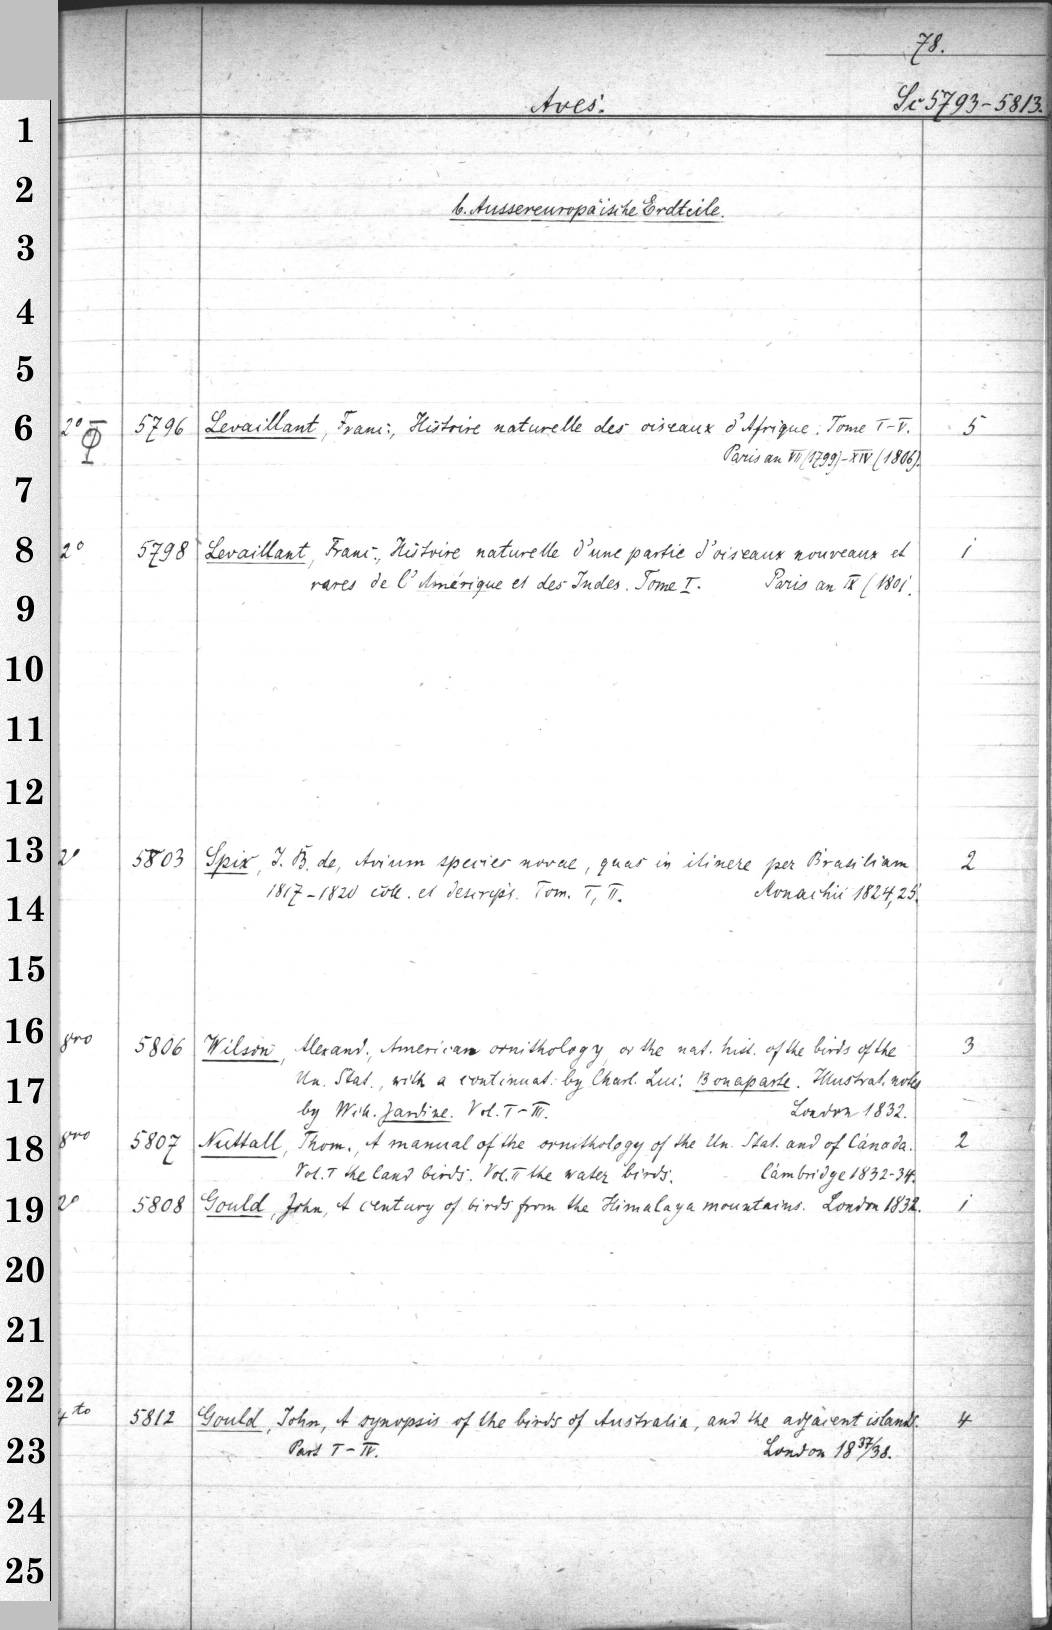 78.
Aves. Sc 5793-5813.
b. Aussereuropäische Erdteile.
1
2
3
4
5
6 2° 5796 Levaillant, Franc., Histoire naturelle des oiseaux d'Afrique. Tome I-V. 5
Paris an VII (1799)-XIV (1806).
7
8 2° 5798 Levaillant, Franc., Histoire naturelle d'une partie d'oiseaux nouveaux et 1
rares de l'Amérique et des Indes. Tome I. Paris an IX (1801.
9
10
11
12
13 2° 5803 Spix, J. B. de, Avium species novae, quas in itinere per Brasiliam 2
1817-1820 coll. et descrips. Tom. I, II. Monachii 1824,25.
14
15
16 8vo 5806 Wilson, Alexand., American ornithology or the nat. hist. of the birds of the 3
17 Un. Stat., with a continuat. by Charl. Luc. Bonaparte. Illustrat. notes
by Will. Jardine. Vol. I-III. London 1832.
18 8vo 5807 Nuttall, Thom., A manual of the ornithology of the Un. Stat. and of Canada. 2
Vol. I the land birds. Vol. II the water birds. Cambridge 1832-34.
19 2° 5808 Gould, John, A century of birds from the Himalaya mountains. London 1832. 1
20
21
22
4to 5812 Gould, John, A synopsis of the birds of Australia, and the adjacent islands. 4
23 Part I-IV. London 1837/38.
24
25